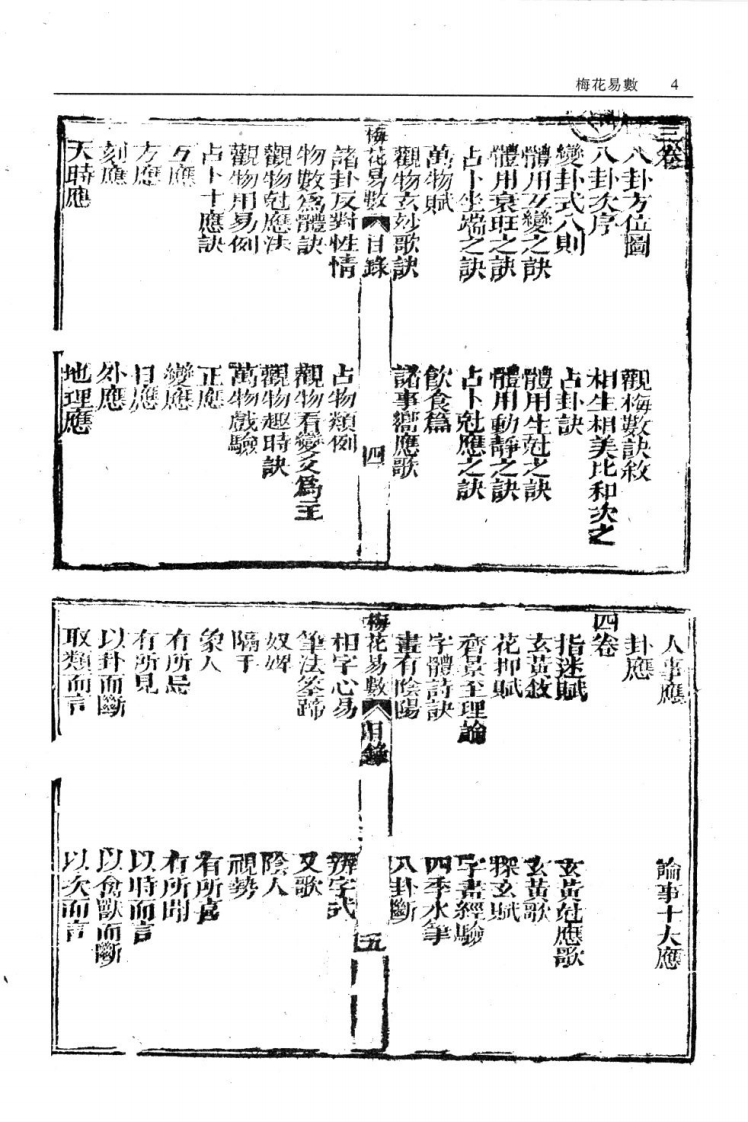 梅花易數 4
三卷
八卦方位圖 觀梅數訣敘
八卦次序 相生相美比和次之
變卦式八則 占卦訣
體用互變之訣 體用生尅之訣
體用衰旺之訣 體用動靜之訣
占卜坐端之訣 占卜尅應之訣
萬物賦 飲食篇
觀物玄妙歌訣 諸事響應歌
梅花易數 目錄 四
諸卦反對性情 占物類例
物數為體訣 觀物看變爻為主
觀物尅應法 觀物趣時訣
觀物用易例 萬物戲驗
占卜十應訣 正應
互應 變應
方應 日應
刻應 外應
天時應 地理應
人事應 論事十大應
卦應
四卷
指迷賦 玄黃尅應歌
玄黃敘 玄黃歌
花押賦 探玄賦
齊景至理論 字畫經驗
字體詩訣 四季水筆
畫有陰陽 八卦斷
梅花易數 目錄 五
相字心易 辨字式
筆法筌蹄 又歌
奴婢 陰人
隔手 視勢
象人 有所喜
有所忌 有所聞
有所見 以時而言
以卦而斷 以禽獸而斷
取類而言 以次而言